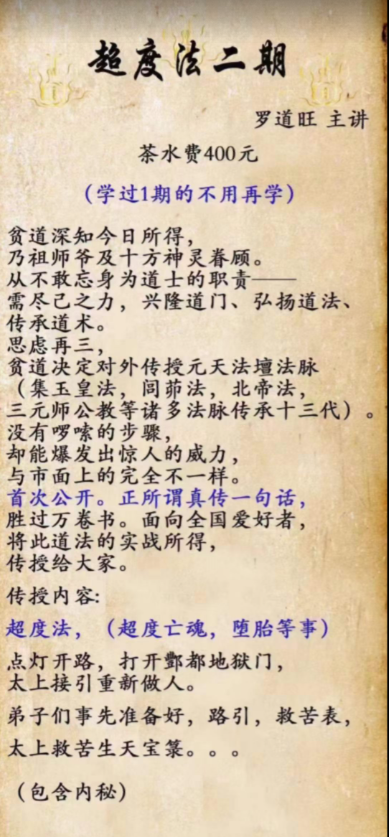 超度法二期
罗道旺 主讲
茶水费400元
（学过1期的不用再学）
贫道深知今日所得，
乃祖师爷及十方神灵眷顾。
从不敢忘身为道士的职责——
需尽己之力，兴隆道门、弘扬道法、
传承道术。
思虑再三，
贫道决定对外传授元天法壇法脉
（集玉皇法，闾茆法，北帝法，
三元师公教等诸多法脉传承十三代）。
没有啰嗦的步骤，
却能爆发出惊人的威力，
与市面上的完全不一样。
首次公开。正所谓真传一句话，
胜过万卷书。面向全国爱好者，
将此道法的实战所得，
传授给大家。
传授内容:
超度法，（超度亡魂，堕胎等事）
点灯开路，打开酆都地狱门，
太上接引重新做人。
弟子们事先准备好，路引，救苦表，
太上救苦生天宝箓。。。
（包含内秘）